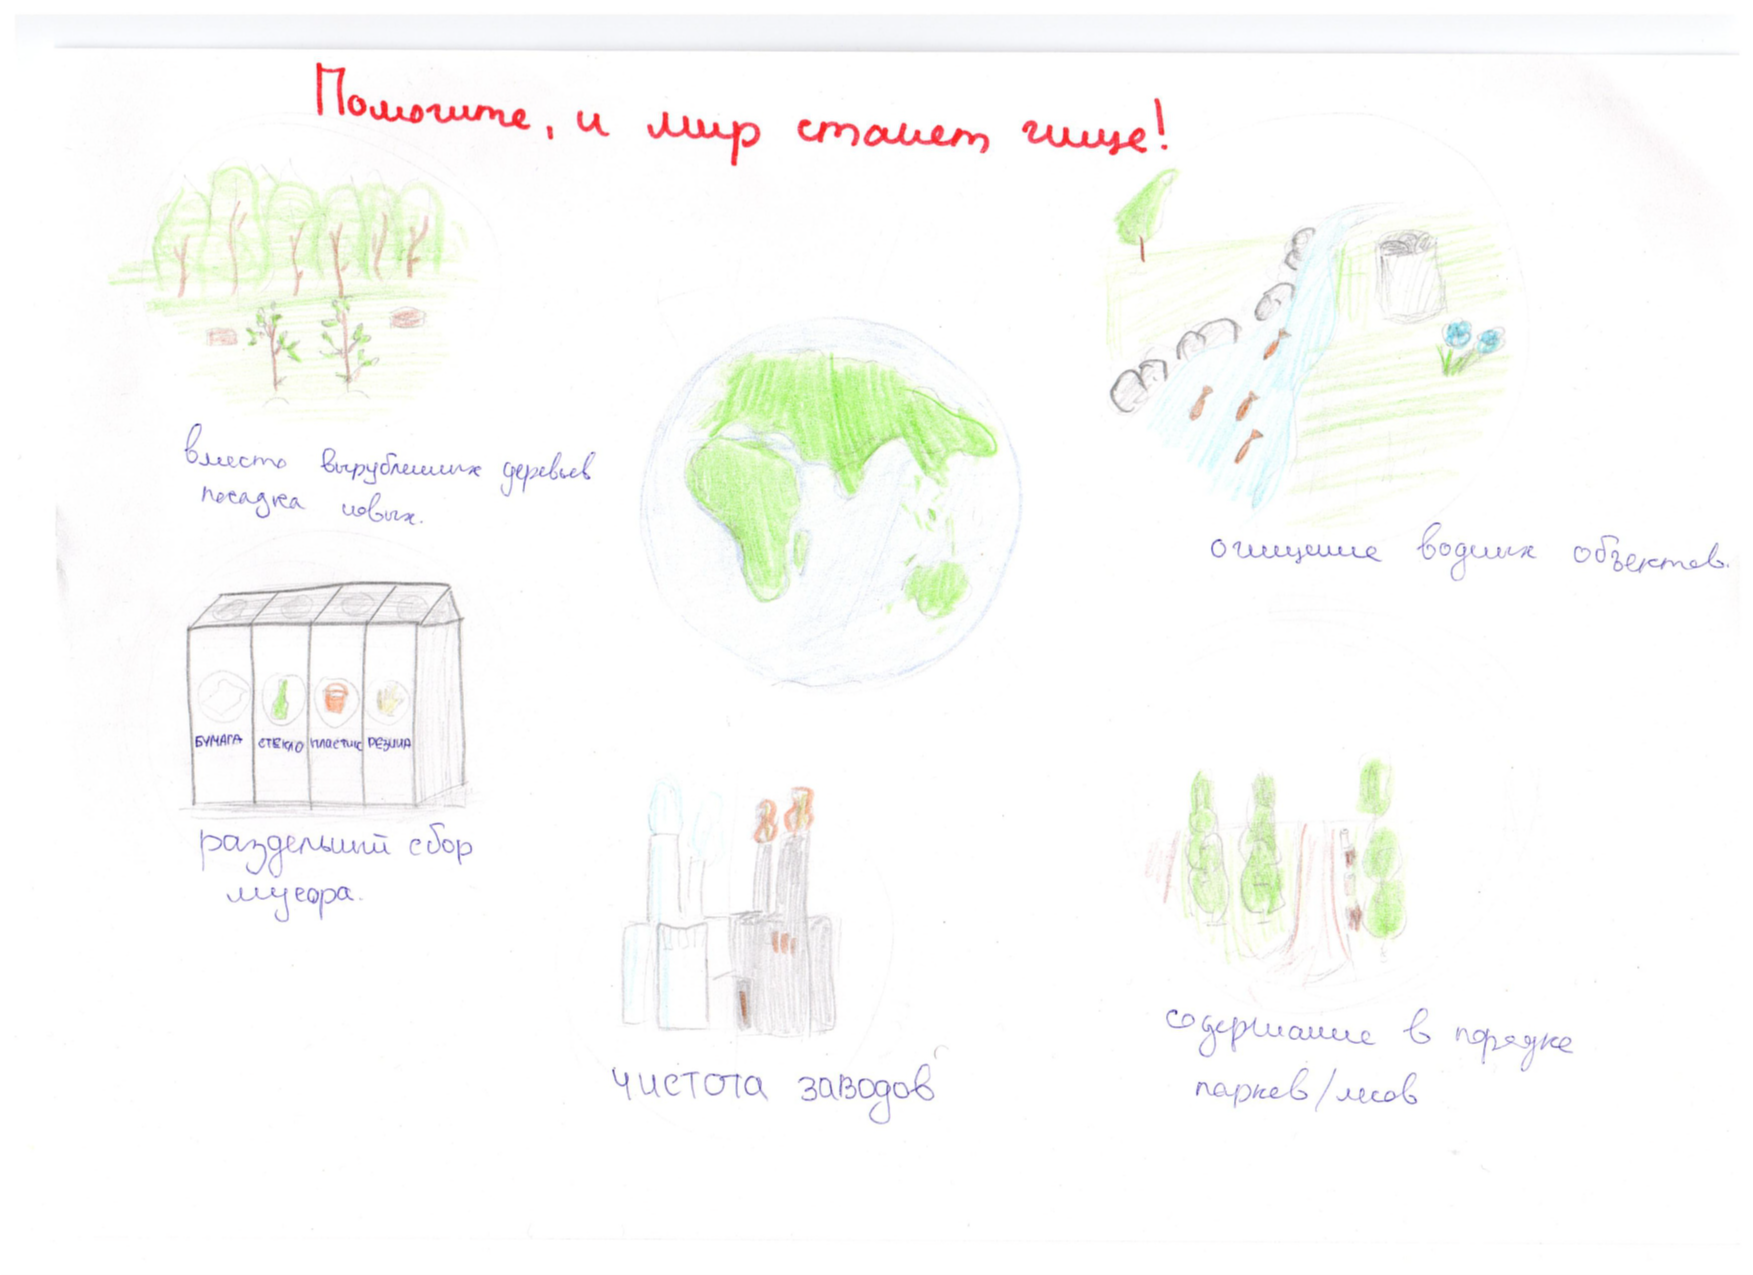 Помогите, и мир станет чище!
вместо вырубленных деревьев
посадка новых.
очищение водных объектов.
БУМАГА
СТЕКЛО
ПЛАСТИК
РЕЗИНА
раздельный сбор
мусора.
чистота заводов
содержание в порядке
парков/лесов